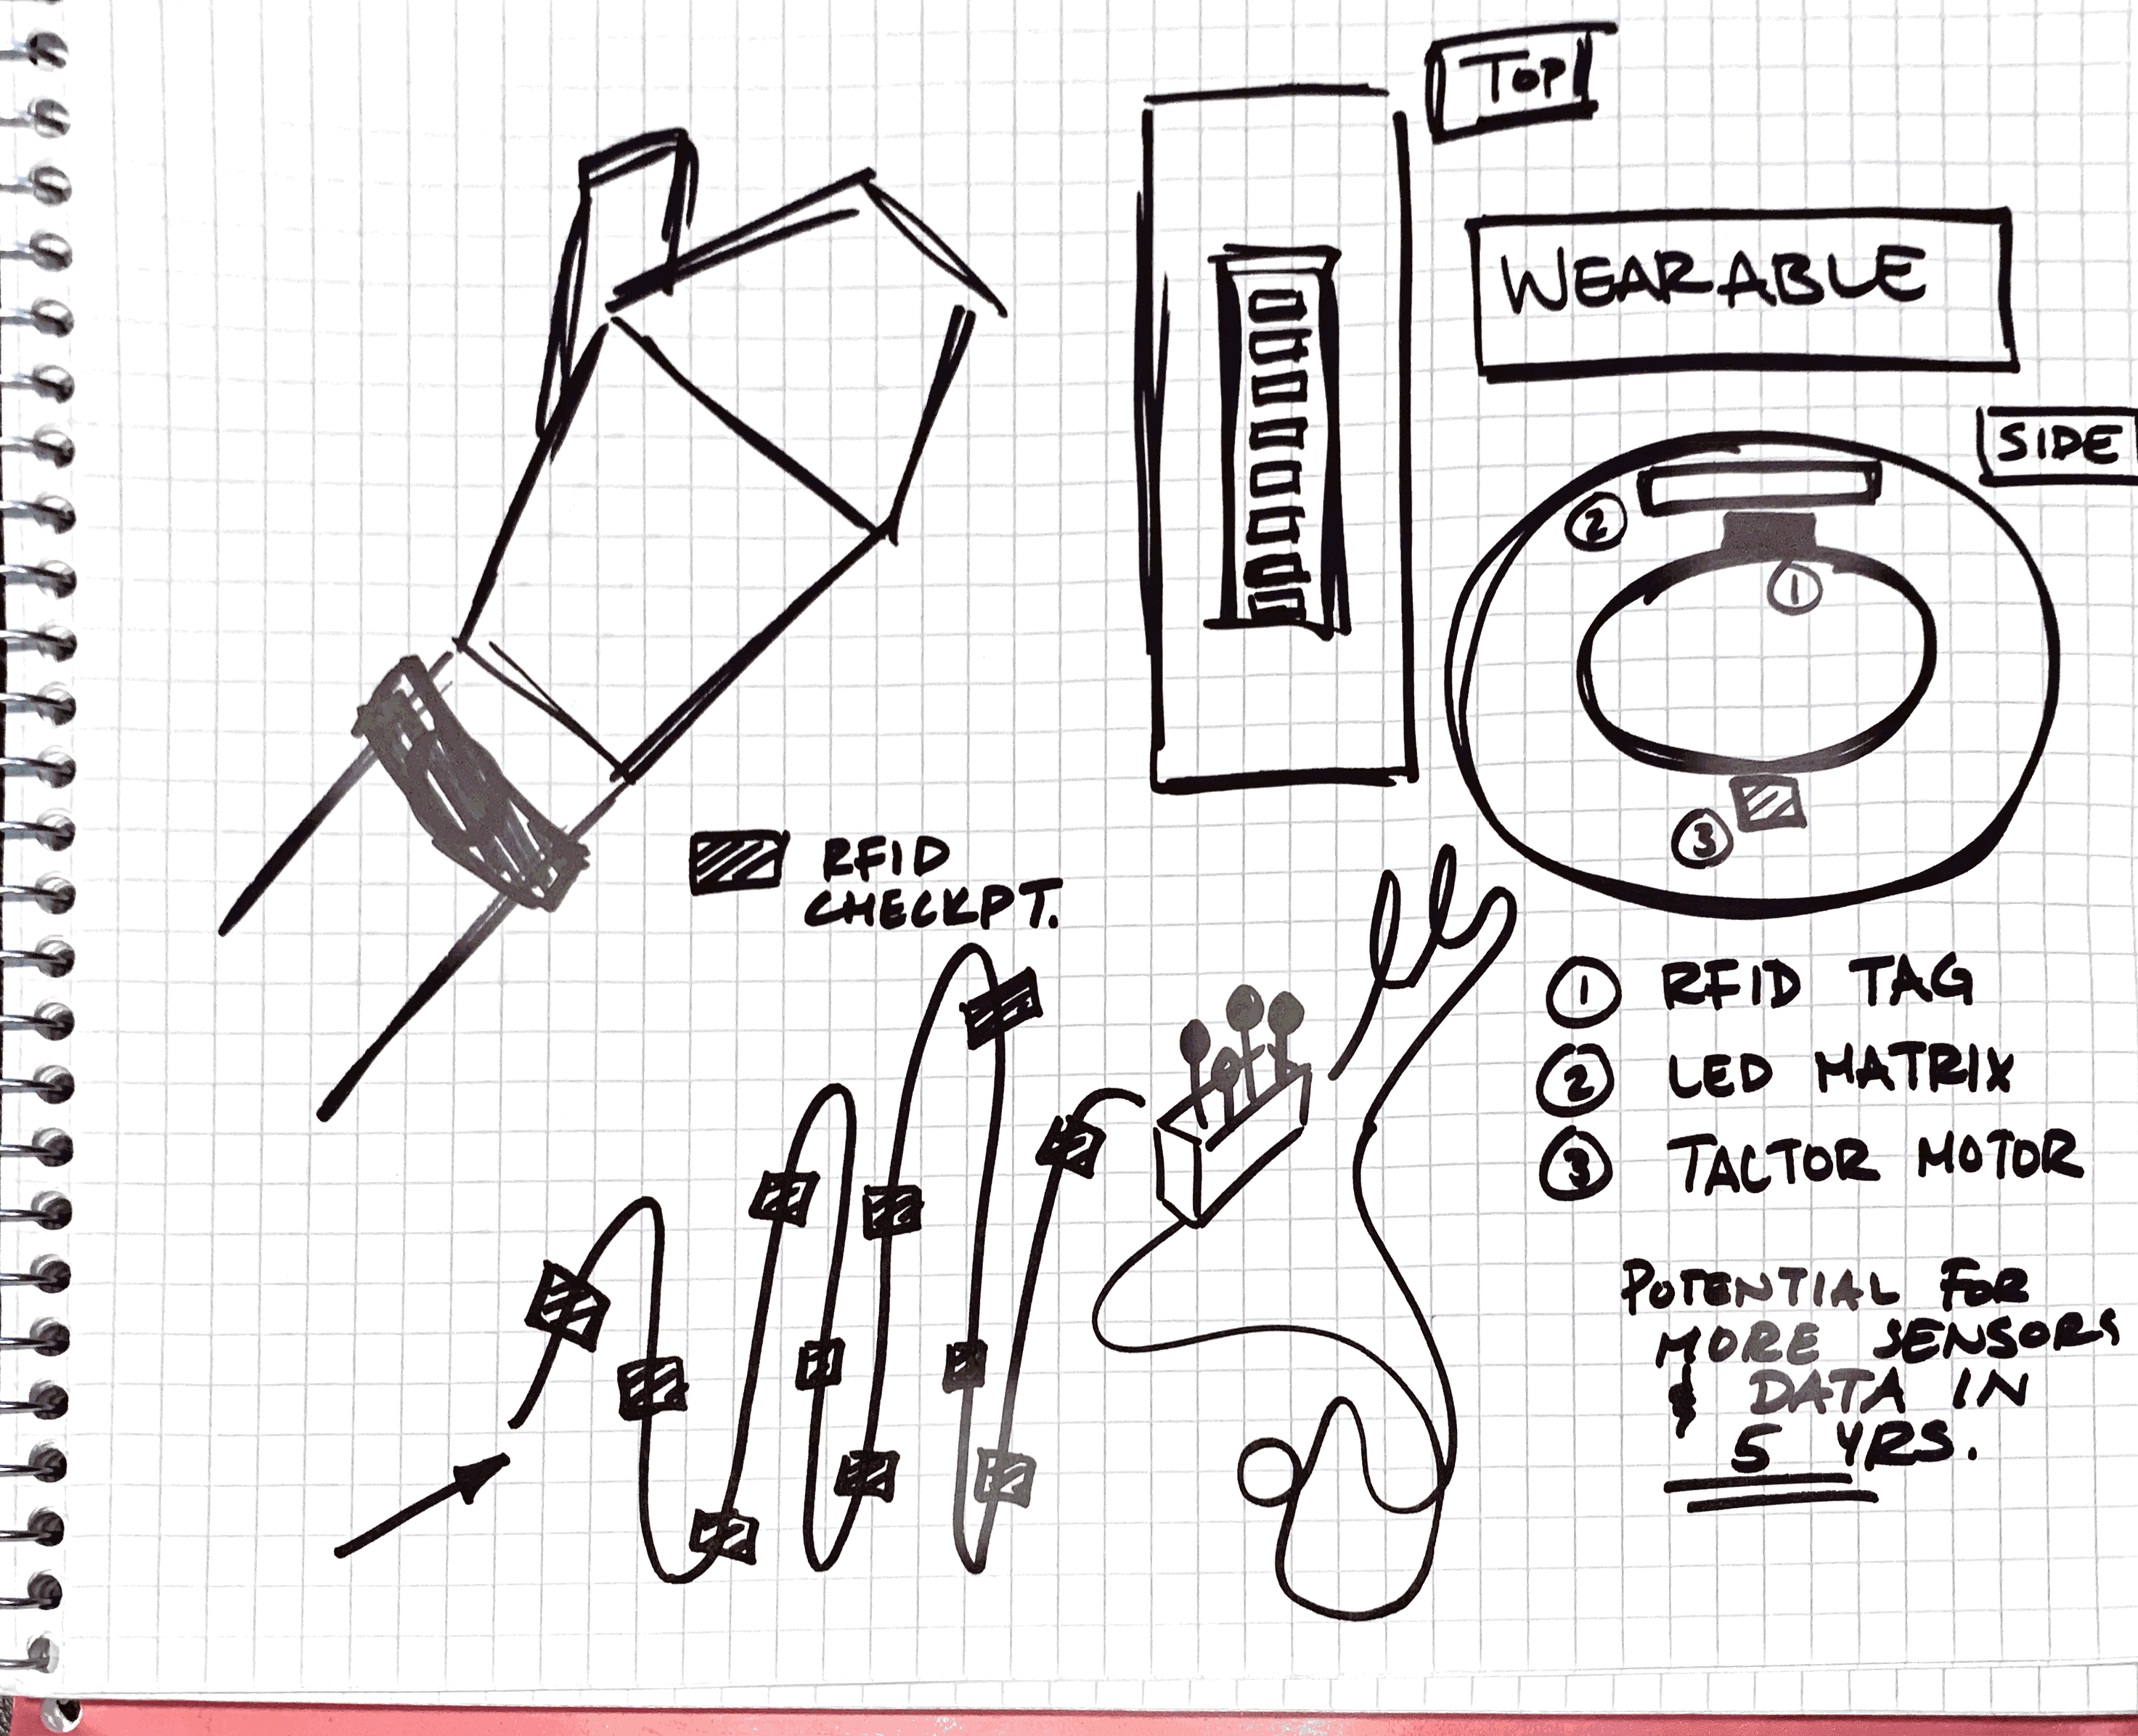 TOP
WEARABLE
SIDE
2
1
3
RFID
CHECKPT.
1 RFID TAG
2 LED MATRIX
3 TACTOR MOTOR
POTENTIAL FOR
MORE SENSORS
& DATA IN
5 YRS.